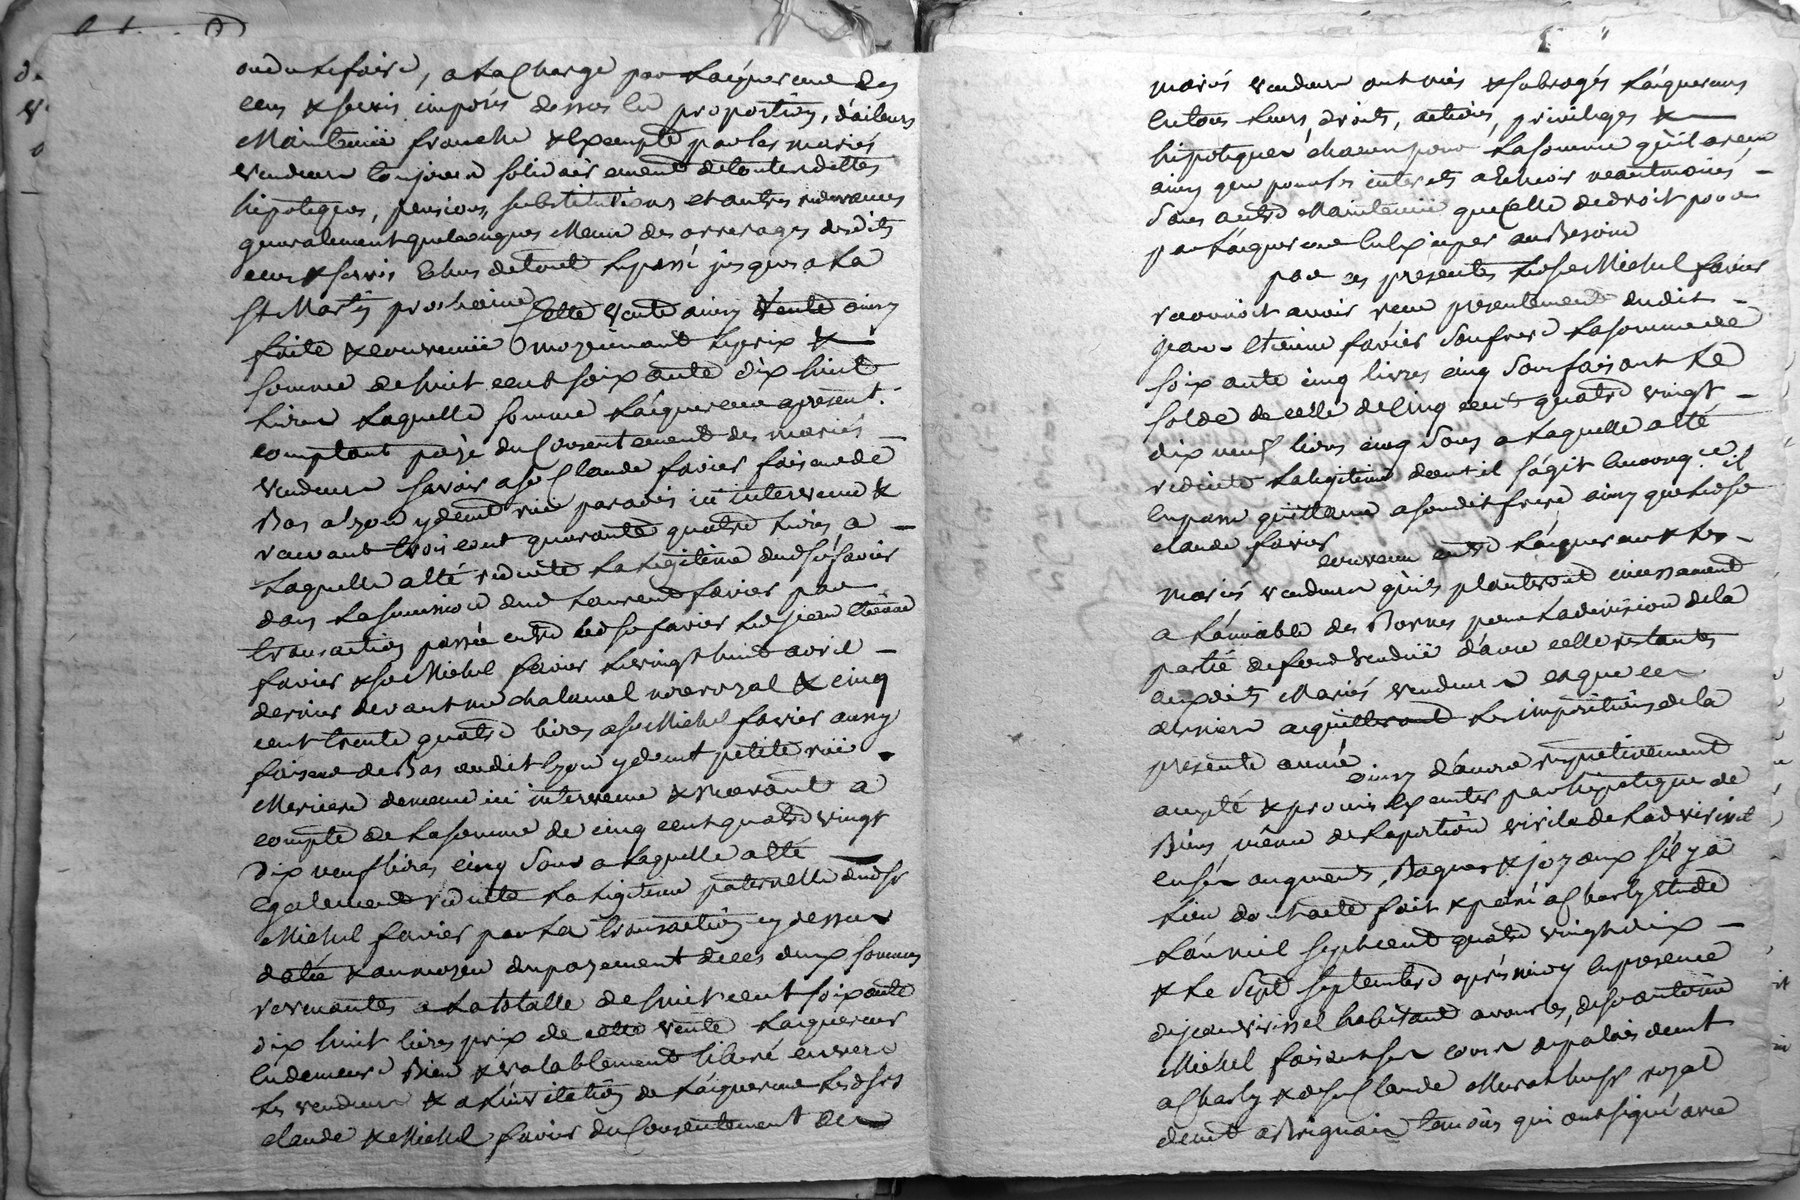 ou du Lefaire, a La Charge par Laiquereur des
cens & servis imposés dessus les proportion, d'ailieurs
Maintenüe franche & Exempte par les mariés
vendeurs toujours solidairement de toutes dettes
hipoteques, pensions, substitutions et autres redevances
generalement quelconques Meme des arrerages desdits
cens & servis Echus de tout Le passé jusques a La
St Martin prochaine Cette vente ainsy vente ainsy
faite & convenüe moyennant Le prix &
somme de huit cent soixante dix huit
Livres Laquelle somme Laiquereur a present.
comptant payé du Consentement des mariés
vendeurs savoir a sr Claude favier faiseur de
Bas a lyon y demt rüe paradis ici intervenu &
recevant trois cent quarante quatre Livres a
Laquelle a été reduite La Legitime dud sr favier
dans La succession dud Laurent favier par
transaction passée entre led sr favier Led jean Etienne
favier & sr Michel favier Le vingt huit avril
dernier devant me chalamel nore royal & cinq
cent trente quatre livres a sr Michel favier aussy
faiseur de Bas audit lyon y demt petite rüe
Merciere demeure ici intervenu & recevant a
compte de La somme de cinq cent quatre vingt
Dix neuf livres cinq sous a Laquelle a été
egalement reduitte La Legitime paternelle dud sr
Michel favier par La transaction cy dessus
datée & au moyen du payement de ces deux sommes
revenantes a La totalle de huit cent soixante
dix huit livres prix de cette vente Laiquereur
En demeure Bien & valablement liberé envers
Les vendeurs & a L'invitation de Laiquereur Lesd srs
claude & Michel favier du Consentement des
mariés vendeurs ont mis & subrogés Laiquereur
En tous Leurs droits, actions, privileges &
hipoteques chacun pour La somme qu'il a receu
ainsy que pour les interets a Echeoir neantmoins
sans autre Maintenüe que celle de droit pour
par Laiquereur En Exciper au Besoin
par ces presentes Led sr Michel favier
reconnoit avoir receu presentement dudit
jean-Etienne favier son frere La somme de
soixante cinq livres cinq sous faisant Le
solde de celle de Cinq cent quatre vingt
dix neuf livres cinq sous a Laquelle a été
reduite La legitime dont il s'agit Encore qu'il
En passe quittance a son dit frere ainsy que Led sr
claude favier
convenu entre Laiquereur & Les
mariés vendeurs qu'ils planteront incessament
a L'amiable des Bornes pour La division de la
partie de fond vendüe d'avec celle restante
auxdits Mariés vendeurs et que ces
derniers acquitteront Les impositions de la
presente année
ainsy d'accord respectivement
accepté & promis Executer par hipoteque de
Biens même de La portion virile de Lad vissivel
en ses augments, Bagues & joyaux s'il y a
Lieu dont acte fait & passé a Charly Etude
L'an mil sept cent quatre vingt dix
& Le sept septembre après midy En presence
de jean vissivel habitant a vourles, de sr antoine
Michel faisant ses cours de palais demt
a Charly & de sr Claude Murat huissr royal
demt a Brignais temoins qui ont signé avec